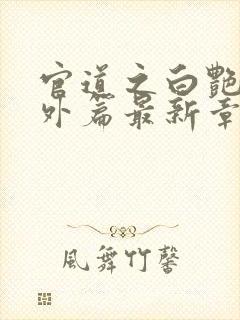 官道之白艷
外篇最新章
風舞竹馨